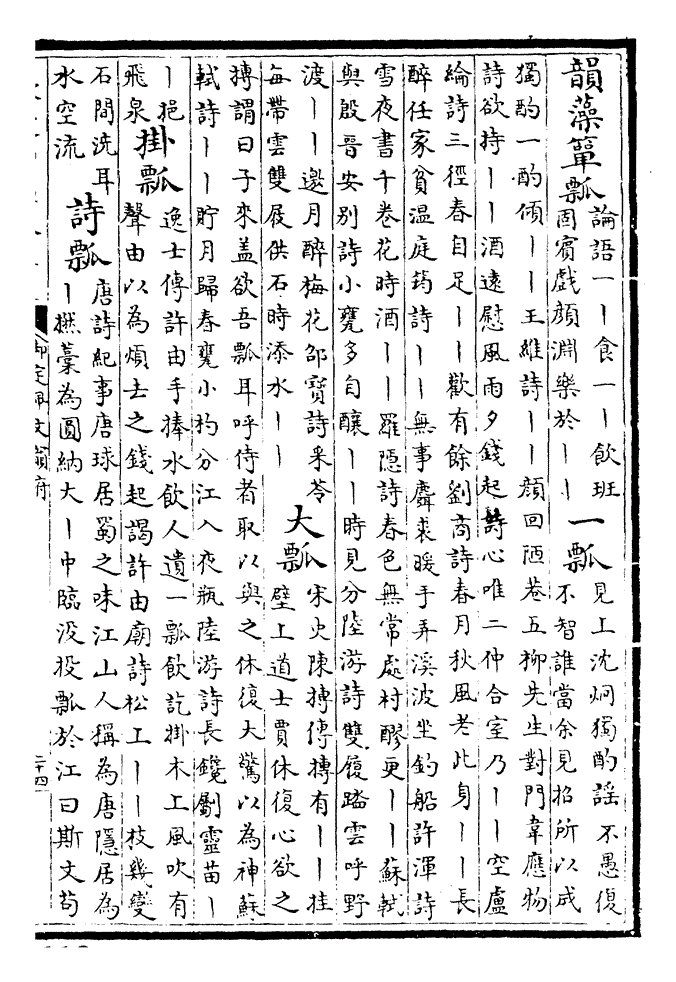 韻藻簞瓢
論語一丨食一丨飲班
固賓戲顔淵樂於丨丨
一瓢
見上沈炯獨酌謡不愚復
不智誰當余見招所以成
獨酌一酌傾丨丨王維詩丨丨顔回陋巷五柳先生對門韋應物
詩欲持丨丨酒遠慰風雨夕錢起詩心唯二仲合室乃丨丨空盧
綸詩三徑春自足丨丨歡有餘劉商詩春月秋風老此身丨丨長
醉任家貧温庭筠詩丨丨無事麛裘暖手弄溪波坐釣船許渾詩
雪夜書千卷花時酒丨丨羅隱詩春色無常處村醪更丨丨蘇軾
與殷晉安別詩小甕多自釀丨丨時見分陸游詩雙屐踏雲呼野
渡丨丨邀月醉梅花邵寶詩采苓
每帶雲雙屐供石時添水丨丨
大瓢
宋史陳摶傳摶有丨丨挂
壁上道士賈休復心欲之
摶謂曰子來蓋欲吾瓢耳呼侍者取以與之休復大驚以為神蘇
軾詩丨丨貯月歸春甕小杓分江入夜瓶陸游詩長鑱劚靈苗丨
丨挹
飛泉
掛瓢
逸士傳許由手捧水飲人遺一瓢飲訖掛木上風吹有
聲由以為煩去之錢起謁許由廟詩松上丨丨枝幾變
石間洗耳
水空流
詩瓢
唐詩紀事唐球居蜀之味江山人稱為唐隱居為
丨撚藁為圓納大丨中臨没投瓢於江曰斯文茍
御定佩文韻府
二十四